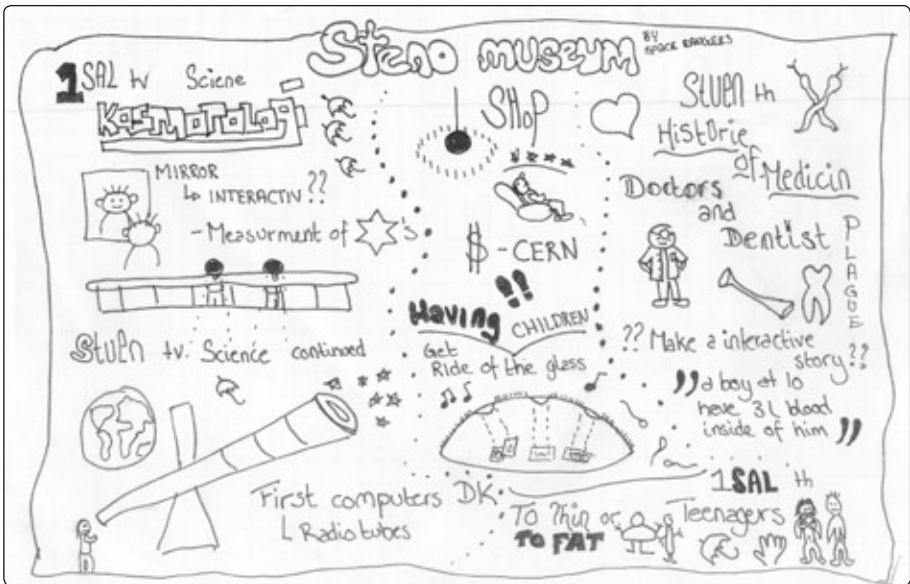 Steno museum
BY
SPACE RANGERS
1 SAL tv Sciene
Kosmotologi
MIRROR
↳ INTERACTIV ??
- Measurment of ☆'s
Stuen tv. Science continued
First computers DK
↳ Radiotubes
SHOP
$ - CERN
Having CHILDREN
Get
Ride of the glass
To Thin or
TO FAT
Stuen th
Historie
of Medicin
Doctors
and
Dentist
PLAGUE
?? Make a interactive
story ??
"a boy at 10
heve 3L blood
inside of him"
1 SAL th
Teenagers